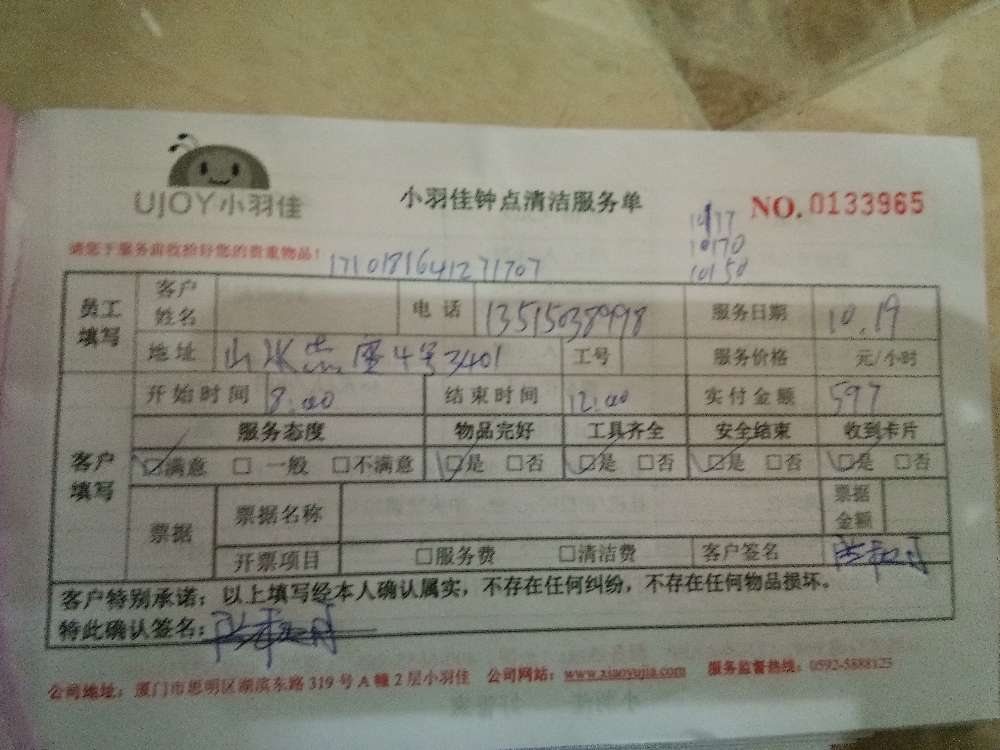 UJOY小羽佳
小羽佳钟点清洁服务单
NO. 0133965
请您于服务前收拾好您的贵重物品!
10170
10150
1710181641271707
员工填写
客户姓名
电话
服务日期 10.19
地址 山水 座4号3401
工号
服务价格 元/小时
客户填写
开始时间 8:00
结束时间 12:00
实付金额 597
服务态度 物品完好 工具齐全 安全结束 收到卡片
☑满意 □一般 □不满意 ☑是 □否 ☑是 □否 ☑是 □否 ☑是 □否
票据
票据名称
票据金额
开票项目 □服务费 □清洁费 客户签名
客户特别承诺:以上填写经本人确认属实,不存在任何纠纷,不存在任何物品损坏。
特此确认签名:
公司地址:厦门市思明区湖滨东路319号A幢2层小羽佳 公司网站:www.xiaoyujia.com 服务监督热线:0592-5888123